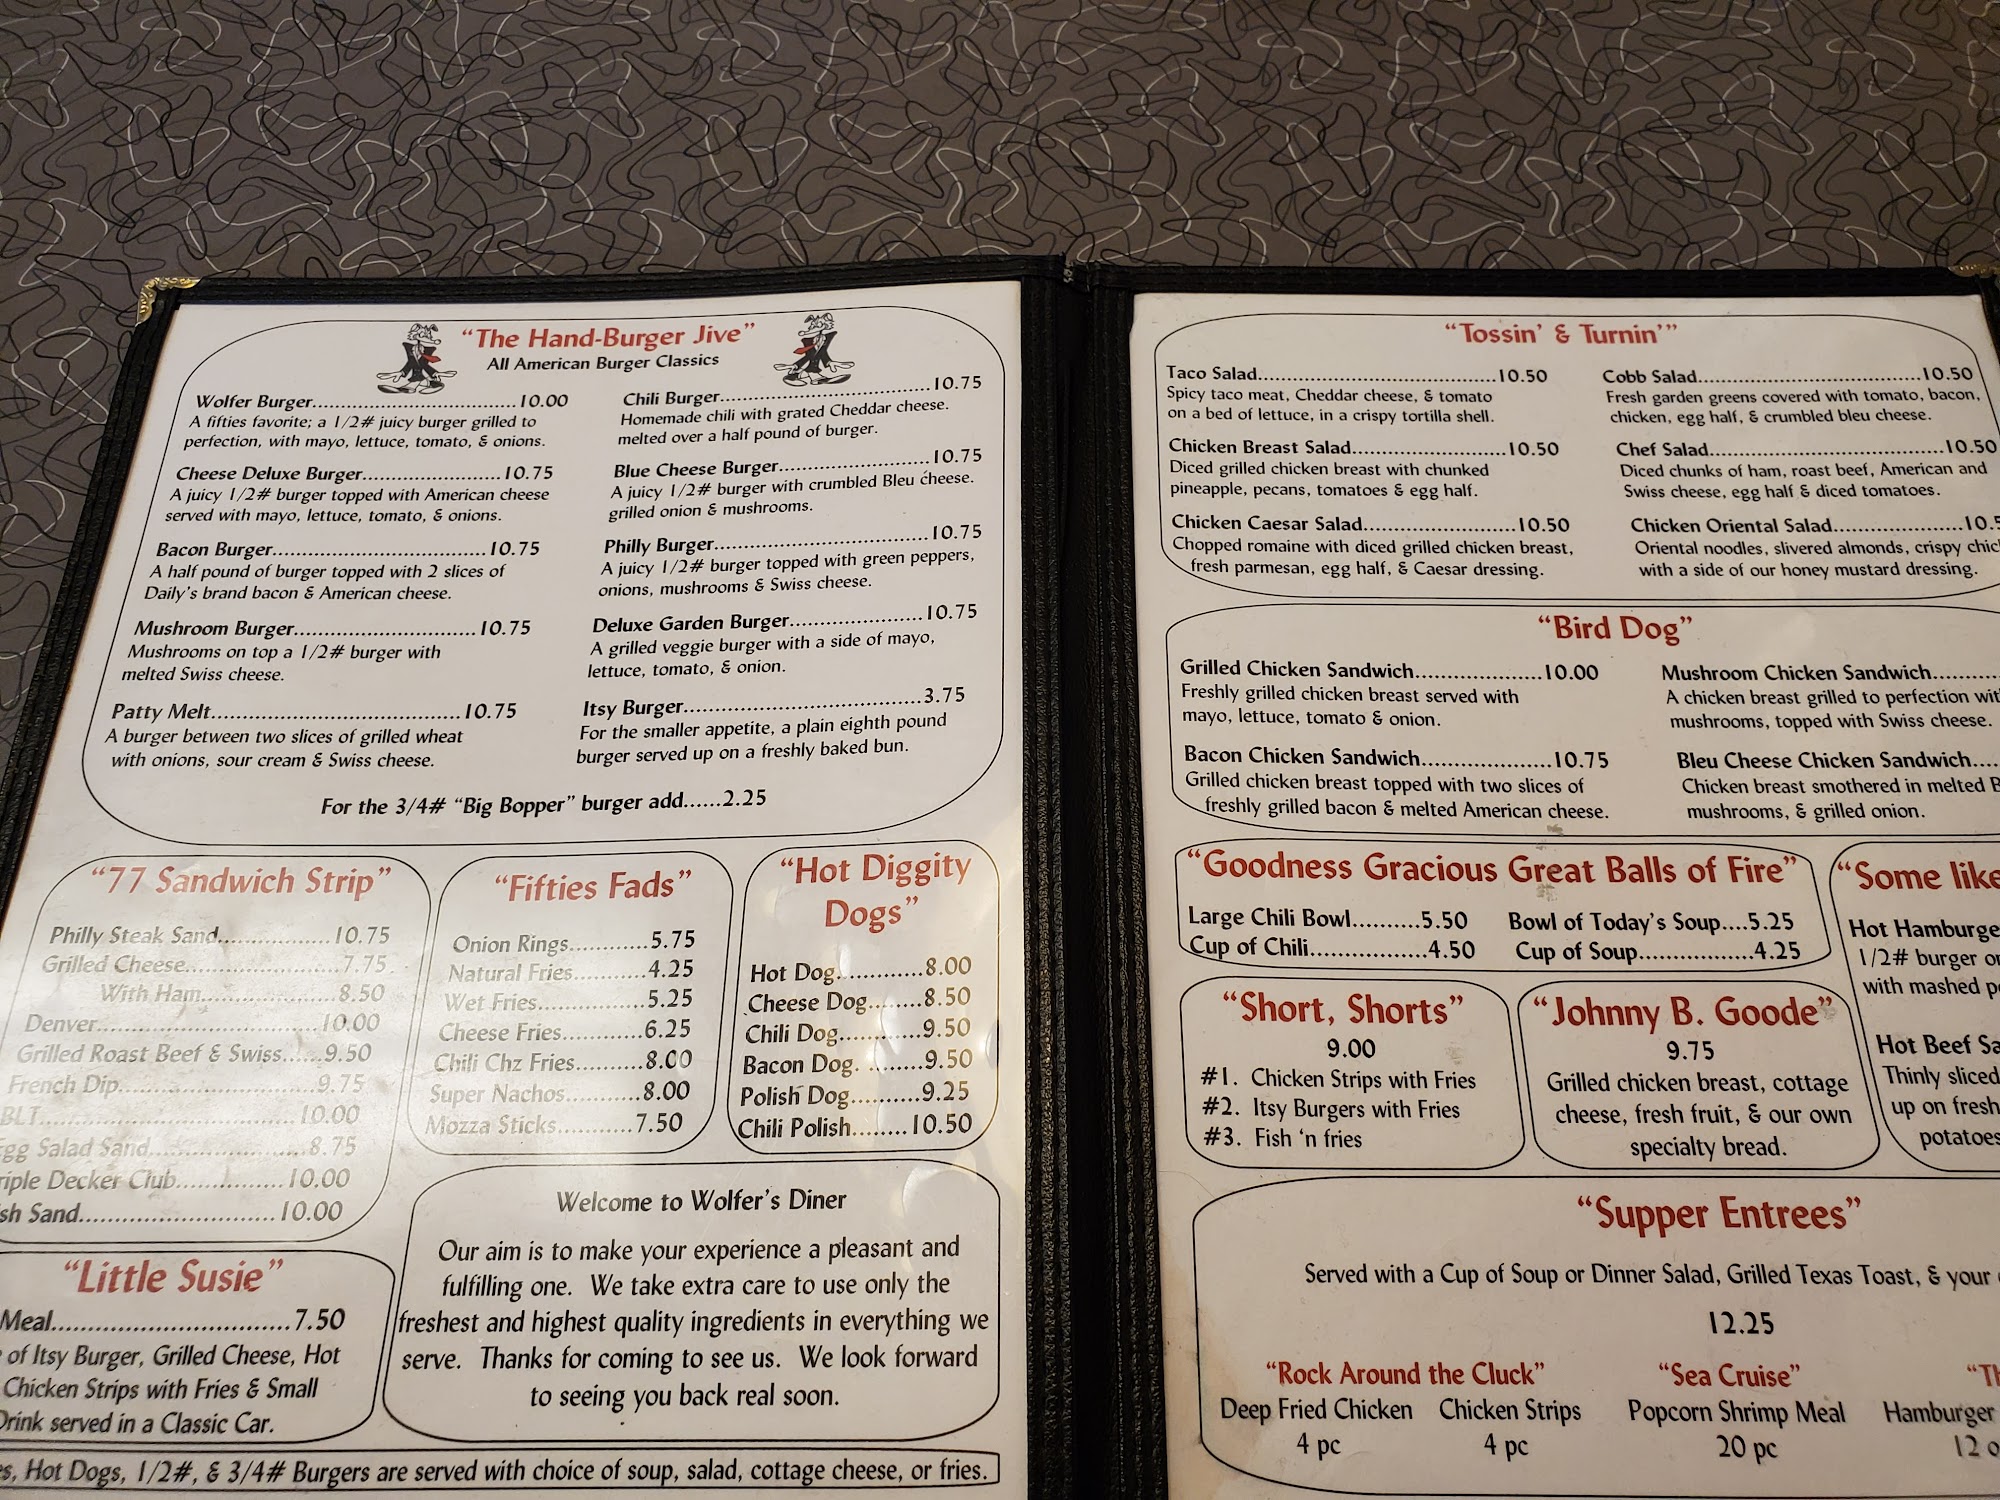 “The Hand-Burger Jive”
All American Burger Classics
Wolfer Burger..........10.00
A fifties favorite; a 1/2# juicy burger grilled to
perfection, with mayo, lettuce, tomato, & onions.
Cheese Deluxe Burger..........10.75
A juicy 1/2# burger topped with American cheese
served with mayo, lettuce, tomato, & onions.
Bacon Burger..........10.75
A half pound of burger topped with 2 slices of
Daily's brand bacon & American cheese.
Mushroom Burger..........10.75
Mushrooms on top a 1/2# burger with
melted Swiss cheese.
Patty Melt..........10.75
A burger between two slices of grilled wheat
with onions, sour cream & Swiss cheese.
Chili Burger..........10.75
Homemade chili with grated Cheddar cheese.
melted over a half pound of burger.
Blue Cheese Burger..........10.75
A juicy 1/2# burger with crumbled Bleu cheese.
grilled onion & mushrooms.
Philly Burger..........10.75
A juicy 1/2# burger topped with green peppers,
onions, mushrooms & Swiss cheese.
Deluxe Garden Burger..........10.75
A grilled veggie burger with a side of mayo,
lettuce, tomato, & onion.
Itsy Burger..........3.75
For the smaller appetite, a plain eighth pound
burger served up on a freshly baked bun.
For the 3/4# “Big Bopper” burger add......2.25
“77 Sandwich Strip”
Philly Steak Sand..........10.75
Grilled Cheese..........7.75
With Ham..........8.50
Denver..........10.00
Grilled Roast Beef & Swiss......9.50
French Dip..........9.75
BLT..........10.00
Egg Salad Sand..........8.75
riple Decker Club..........10.00
sh Sand..........10.00
“Fifties Fads”
Onion Rings..........5.75
Natural Fries..........4.25
Wet Fries..........5.25
Cheese Fries..........6.25
Chili Chz Fries..........8.00
Super Nachos..........8.00
Mozza Sticks..........7.50
“Hot Diggity
Dogs”
Hot Dog..........8.00
Cheese Dog........8.50
Chili Dog..........9.50
Bacon Dog..........9.50
Polish Dog..........9.25
Chili Polish........10.50
“Little Susie”
Meal..........7.50
of Itsy Burger, Grilled Cheese, Hot
Chicken Strips with Fries & Small
Drink served in a Classic Car.
Welcome to Wolfer's Diner
Our aim is to make your experience a pleasant and
fulfilling one. We take extra care to use only the
freshest and highest quality ingredients in everything we
serve. Thanks for coming to see us. We look forward
to seeing you back real soon.
s, Hot Dogs, 1/2#, & 3/4# Burgers are served with choice of soup, salad, cottage cheese, or fries.
“Tossin' & Turnin'”
Taco Salad..........10.50
Spicy taco meat, Cheddar cheese, & tomato
on a bed of lettuce, in a crispy tortilla shell.
Chicken Breast Salad..........10.50
Diced grilled chicken breast with chunked
pineapple, pecans, tomatoes & egg half.
Chicken Caesar Salad..........10.50
Chopped romaine with diced grilled chicken breast,
fresh parmesan, egg half, & Caesar dressing.
Cobb Salad..........10.50
Fresh garden greens covered with tomato, bacon,
chicken, egg half, & crumbled bleu cheese.
Chef Salad..........10.50
Diced chunks of ham, roast beef, American and
Swiss cheese, egg half & diced tomatoes.
Chicken Oriental Salad..........10.5
Oriental noodles, slivered almonds, crispy chic
with a side of our honey mustard dressing.
“Bird Dog”
Grilled Chicken Sandwich..........10.00
Freshly grilled chicken breast served with
mayo, lettuce, tomato & onion.
Bacon Chicken Sandwich..........10.75
Grilled chicken breast topped with two slices of
freshly grilled bacon & melted American cheese.
Mushroom Chicken Sandwich..........
A chicken breast grilled to perfection wit
mushrooms, topped with Swiss cheese.
Bleu Cheese Chicken Sandwich....
Chicken breast smothered in melted B
mushrooms, & grilled onion.
“Goodness Gracious Great Balls of Fire”
Large Chili Bowl..........5.50
Cup of Chili..........4.50
Bowl of Today's Soup....5.25
Cup of Soup..........4.25
“Some like
Hot Hamburge
1/2# burger o
with mashed p
Hot Beef Sa
Thinly sliced
up on fresh
potatoes
“Short, Shorts”
9.00
#1. Chicken Strips with Fries
#2. Itsy Burgers with Fries
#3. Fish 'n fries
“Johnny B. Goode”
9.75
Grilled chicken breast, cottage
cheese, fresh fruit, & our own
specialty bread.
“Supper Entrees”
Served with a Cup of Soup or Dinner Salad, Grilled Texas Toast, & your
12.25
“Rock Around the Cluck”
Deep Fried Chicken Chicken Strips
4 pc 4 pc
“Sea Cruise”
Popcorn Shrimp Meal
20 pc
“Th
Hamburger
12 o